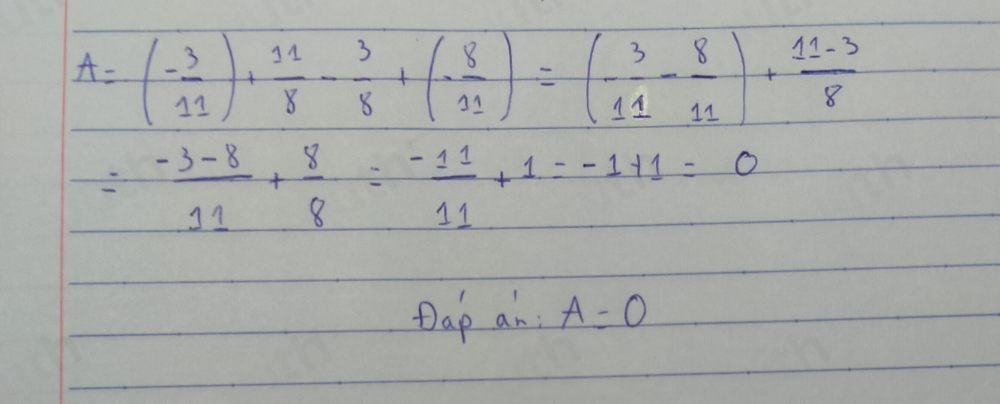 A = (-3/11) + 11/8 - 3/8 + (-8/11) = (-3/11 - 8/11) + (11-3)/8
= (-3-8)/11 + 8/8 = -11/11 + 1 = -1+1 = 0
Đáp án: A = 0